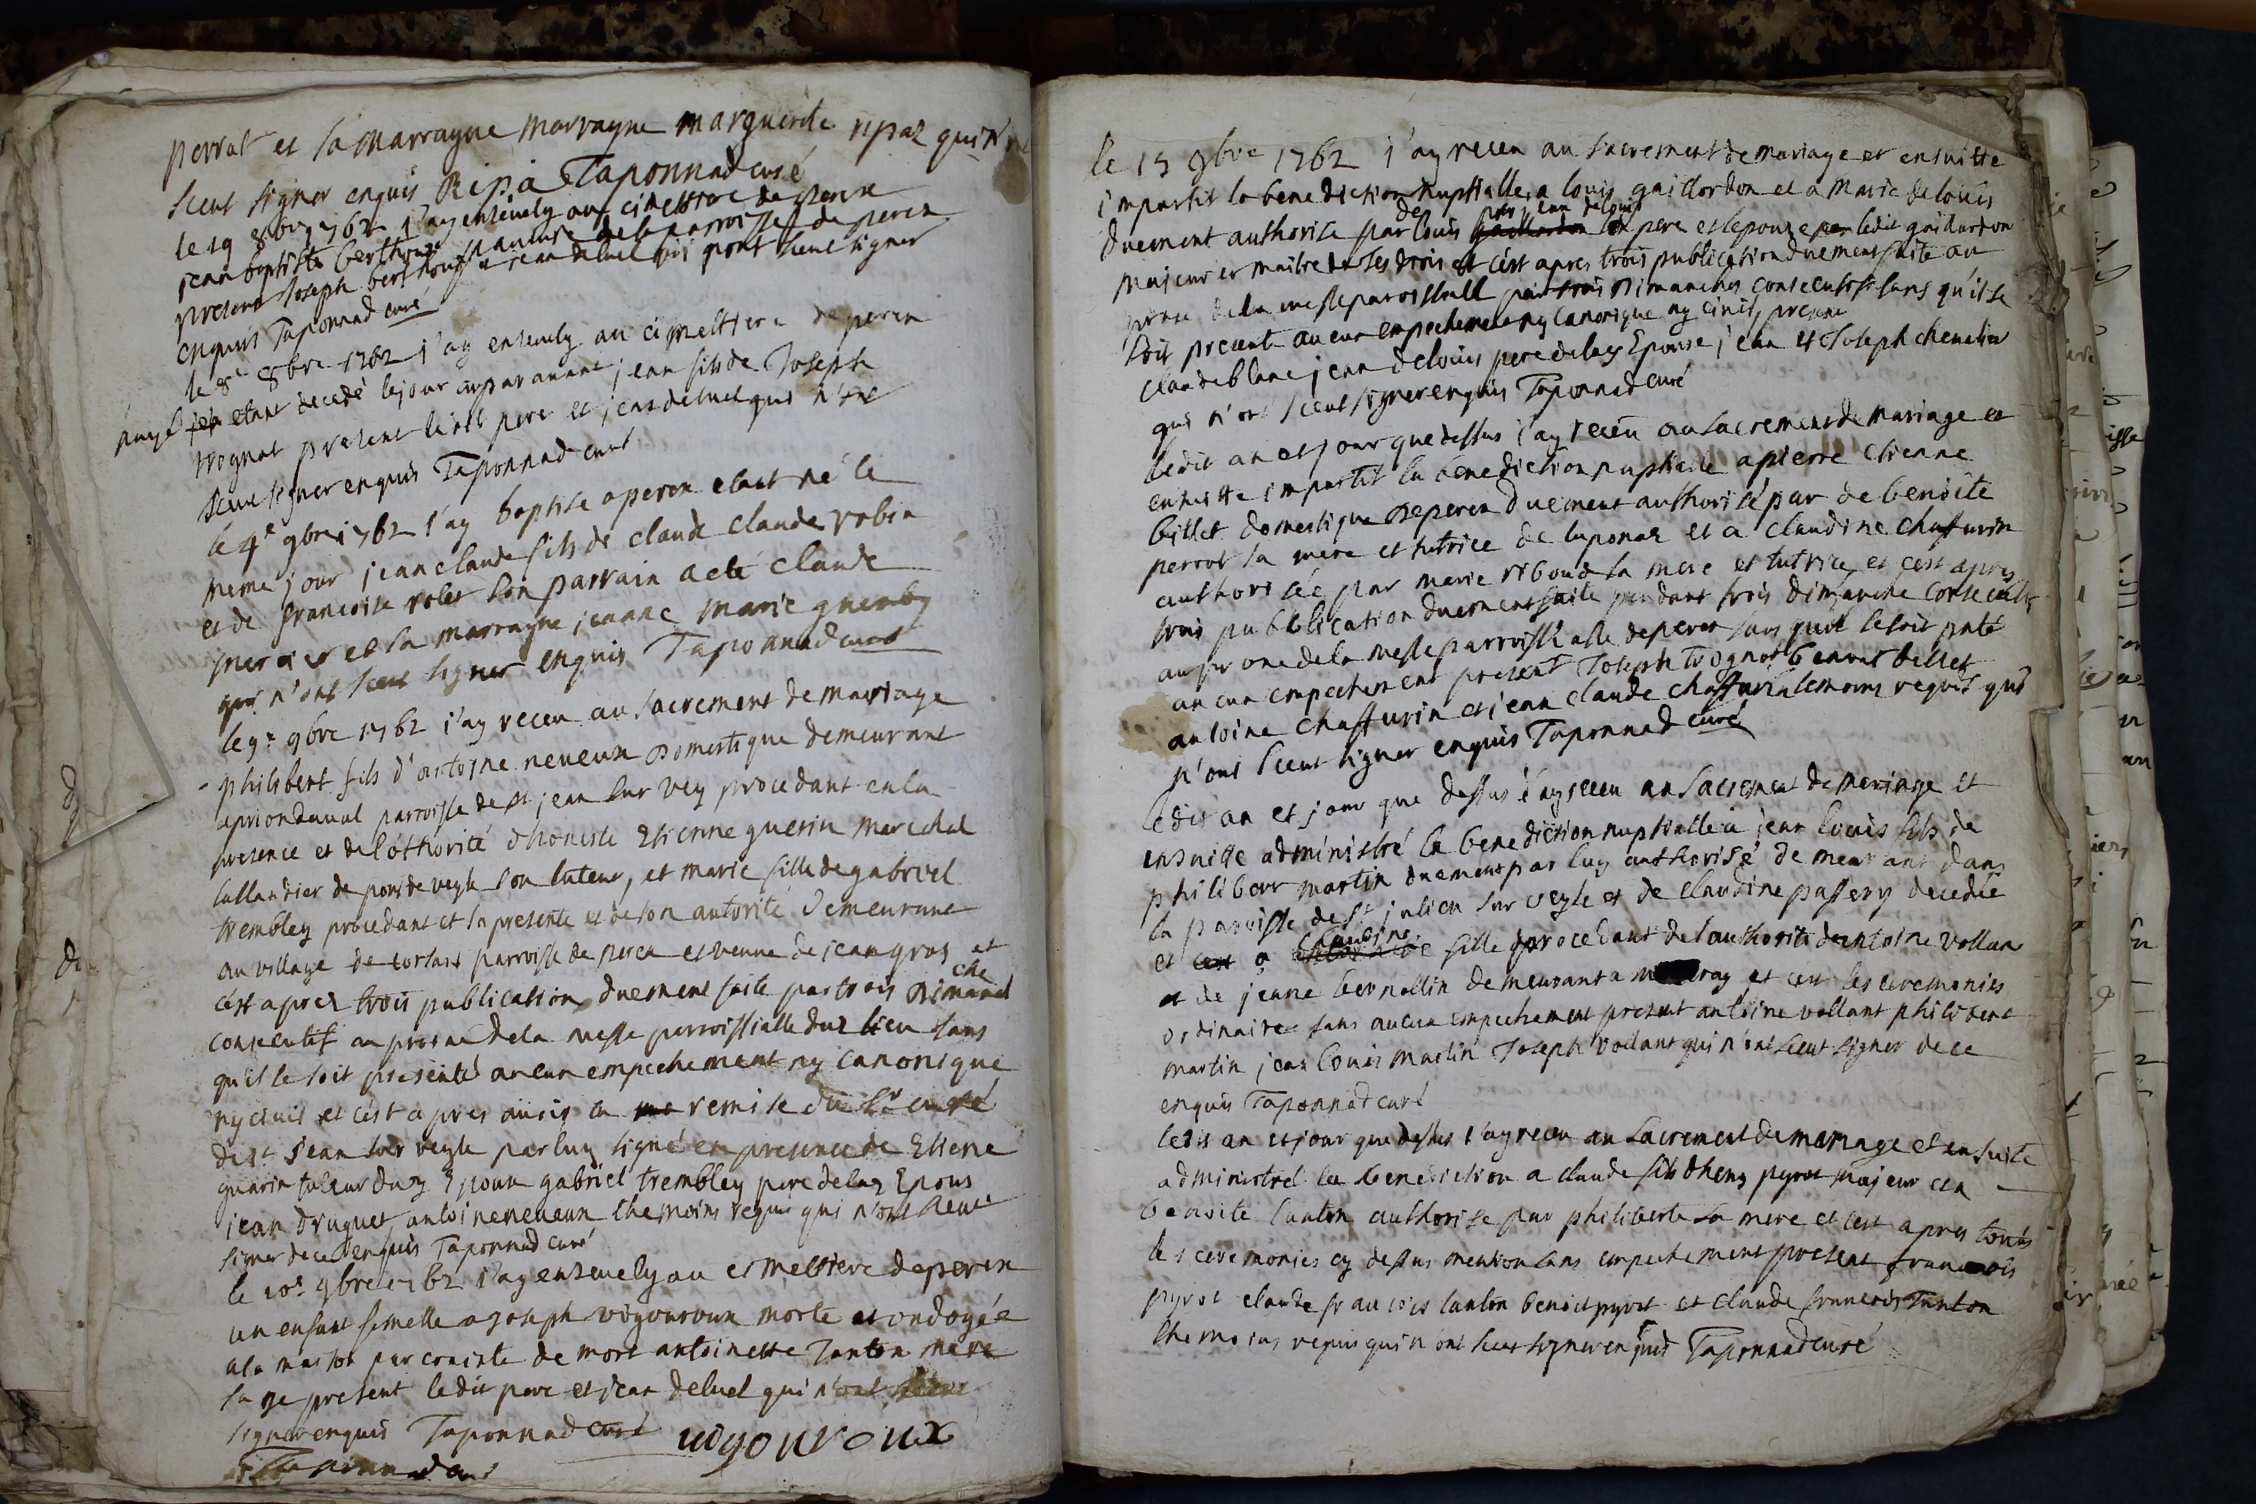 perrat et sa marrayne marrayne marguerite ripaz qui n'ont
sceut signer enquis Ripa Taponnad curé
le 19 8bre 1762 j'ay ensevely au cimettiere de perex
jean baptiste berthoux pauvre de la parroisse de perex
present joseph berthoux et jean deluel qui n'ont sceut signer
enquis Taponnad curé
le 8e 8bre 1762 j'ay ensevely au cimettiere de perex
etant decedé le jour auparavant jean fils de Joseph
trognat present ledit pere et jean deluel qui n'ont
sceut signer enquis Taponnad curé
le 4e 9bre 1762 j'ay baptise a perex etant né le
meme jour jean claude fils de claude claude robin
et de francoise rolet son parrain a eté claude
mercier et sa marrayne jeanne marie guenby
qui n'ont sceut signer enquis Taponnad curé
le 9e 9bre 1762 j'ay receu au sacrement de mariage
philibert fils d'antoine neveux domestique demeurant
a priondaval parroisse de st jean sur vey procedant en la
presence et de l'othorité d'honeste Etienne guerin marechal
tallandier de pont de veyle son tuteur, et marie fille de gabriel
trembley procedant et sa presente et de son autorité demeurant
au village de cortaix parroisse de perex et veuve de jean gros et
c'est aprez trois publication duement faite par trois dimanche
consecutif au prosne de la messe parroissialle duz lieu sans
qu'il se soit presenté aucun empechement ny canonique
ny civil et c'est apres avoir eu remise du Sr curé
de st jean sur veyle par luy signé en presence de Etiene
guarin tuteur duz Epoux gabriel trembley pere delaz Epous
jean druguet antoine neveux themoins requis qui n'ont sceut
signer de ce enquis Taponnad curé
le 10e 9bre 1762 j'ay ensevely au cimettiere de perex
un enfant femelle a joseph vigouroux morte et ondoyée
a la maison par crainte de mort antoinette Tanton mere
sage present ledit pere et jean deluel qui n'ont sceut
signer enquis Taponnad curé vigouroux
Taponnad curé
le 15 9bre 1762 j'ay receu au sacrement de mariage et ensuitte
impartit la benediction nuptialle a louis gaillordon et a Marie de louis
duement authorise par jean de louis son pere et l'epoux ledit gaillardon
majeur et maitre de ses drois et c'est apres trois publication duement faite au
prone de la messe paroissiall par trois dimanches consecutifs sans qu'il se
soit presenté aucun empechement ny canonique ny civil, present
claude blanc jean de louis pere delaz Epouse jean et Joseph chevalier
qui n'ont sceut signer enquis Taponnad curé
ledit an et jour que dessus j'ay receu au sacrement de mariage et
ensuitte impartit la benediction nuptialle a pierre etienne
billet domestique deperex duement authorisé par de benoite
perrot sa mere et tutrice de luponaz et a claudine chaffurin
authorisée par marie riboud sa mere et tutrice, et c'est apres
trois publication duement faite pendant trois dimanche consecutifs
au prone de la messe parroissialle de perex sans qu'il se soit pnté
aucun empechement present Joseph trognot benoit billet
antoine chaffurin et jean claude chaffurin temoins requis qui
n'ont sceut signer enquis Taponnad curé
ledit an et jour que dessus j'ay receu au sacrement de mariage et
ensuitte administré la benediction nuptialle a jean louis fils de
philibert martin duement par luy authorisé demeurant dans
la paroisse de st julien sur veyle et de claudine passery decedée
et a claudine fille procedant de l'authorité d'antoine vollan
et de jeane bernollin demeurant a et c'est les ceremonies
ordinaires sans aucun empechement present antoine vollant philibert
martin jean louis martin Joseph vollant qui n'ont sceut signer de ce
enquis Taponnad curé
ledit an et jour que dessus j'ay receu au sacrement de mariage et ensuite
administrel la benediction a claude fils d'heny pyrot majeur et a
benoite tanton authorise par philiberte sa mere et c'est apres touts
les ceremonies cy dessus mention sans empechement present francois
pyrot claude francois tanton benoit pyrot et claude francois Tanton
themoins requis qui n'ont sceut signer enquis Taponnad curé